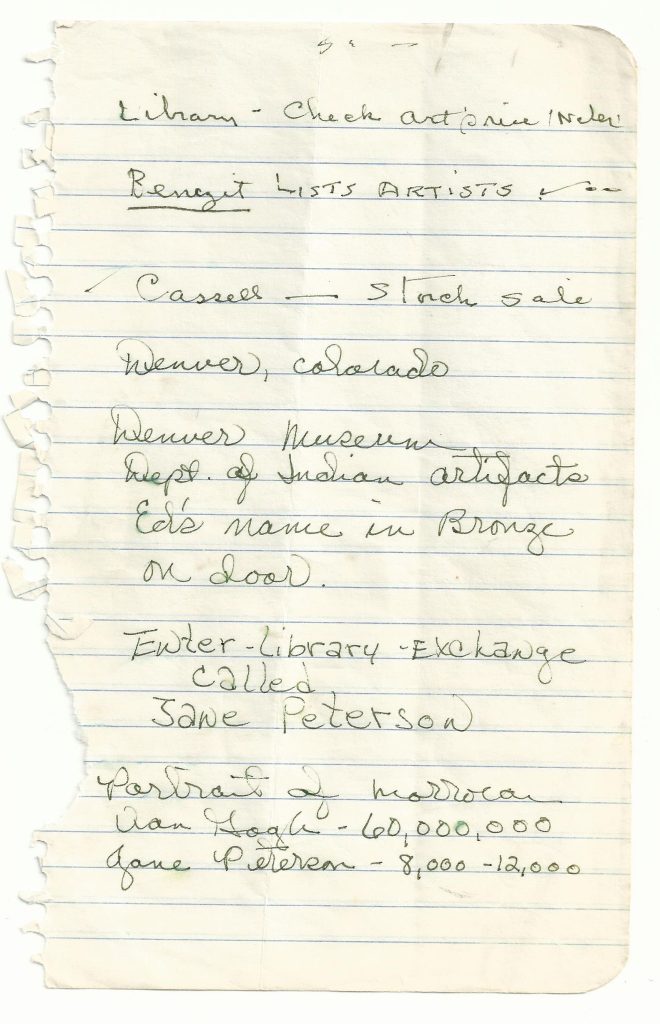 Library - Check art price Index
Benezit LISTS ARTISTS
Cassell — Stock sale
Denver, colorado
Denver Museum
Dept. of Indian artifacts
Ed's name in Bronze
on door.
Enter-Library-Exchange
called
Jane Peterson
Portrait of Morrocan
Van Gogh - 60,000,000
Jane Peterson - 8,000 - 12,000